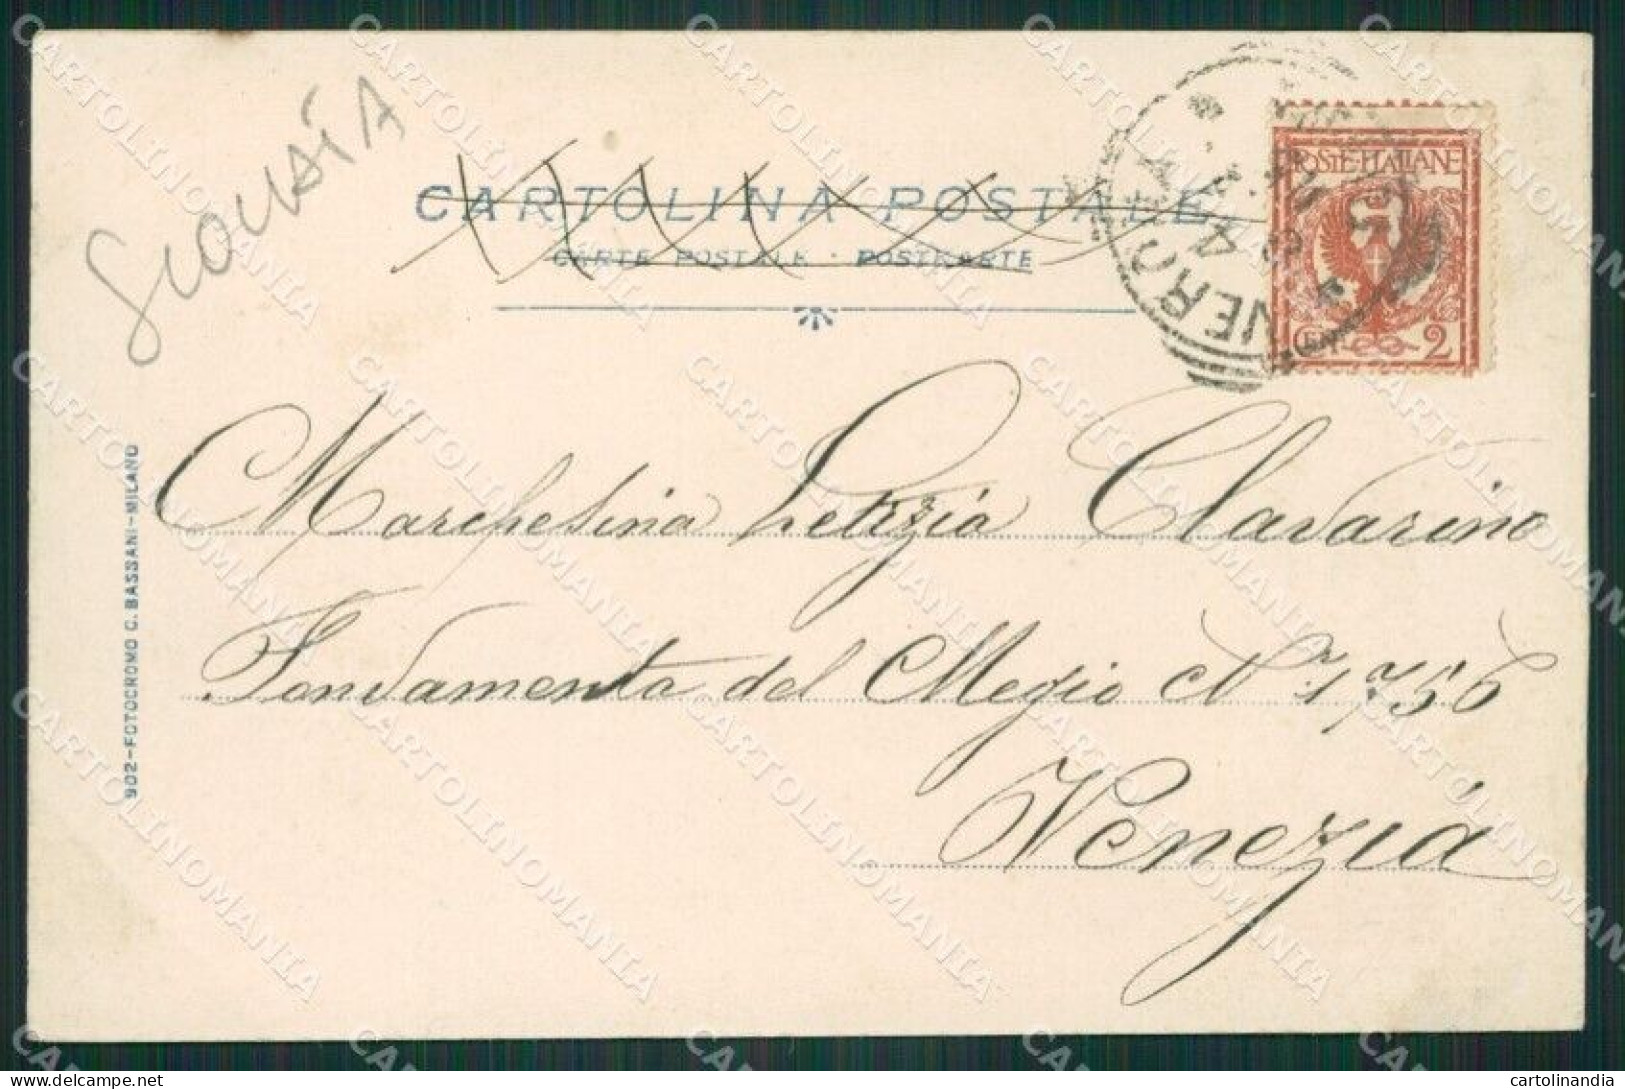 CARTOLINA POSTALE
CARTE POSTALE · POSTKARTE
POSTE·ITALIANE
CENT. 2
Marchesina Letizia Clavarino
Fondamenta del Megio N° 1756
Venezia
902-FOTOCROMO C. BASSANI-MILANO
CARTOLINOMANIA
cartolinandia